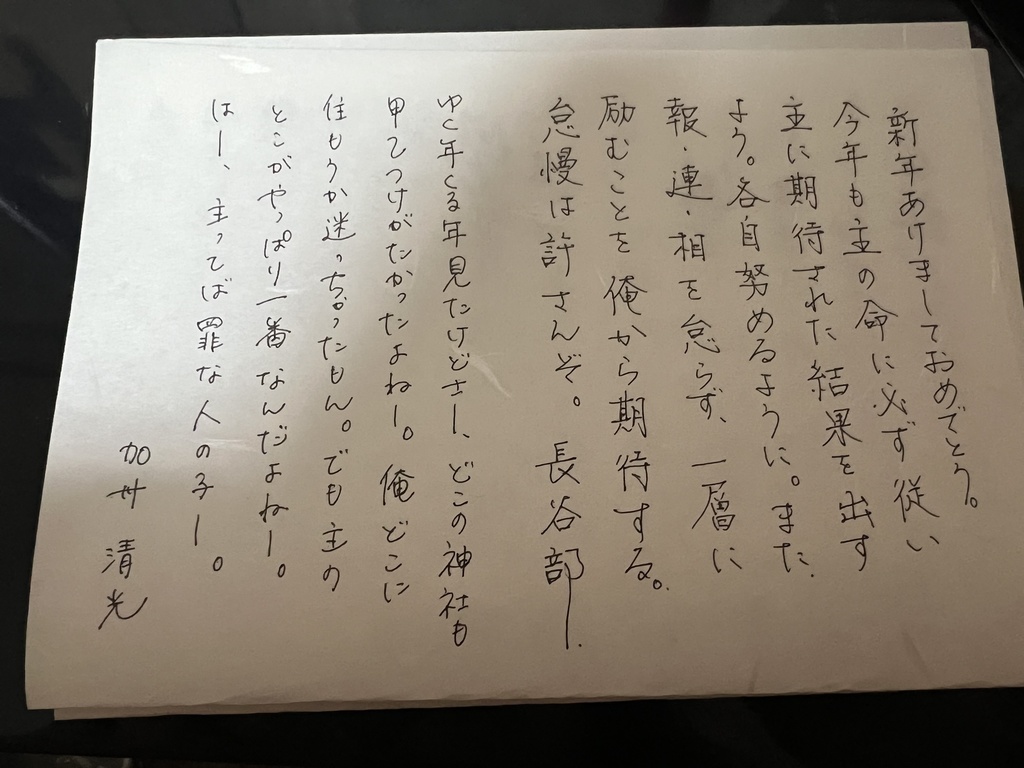 新年あけましておめでとう。
今年も主の命に必ず従い
主に期待された結果を出す
よう。各自努めるように。また
報・連・相を怠らず、一層に
励むことを俺から期待する。
怠慢は許さんぞ。 長谷部
ゆく年くる年見たけどさー、どこの神社も
甲乙つけがたかったよねー。俺どこに
住もうか迷っちゃったもん。でも主の
とこがやっぱり一番なんだよねー。
はー、主ってば罪な人の子ー。
加州 清光